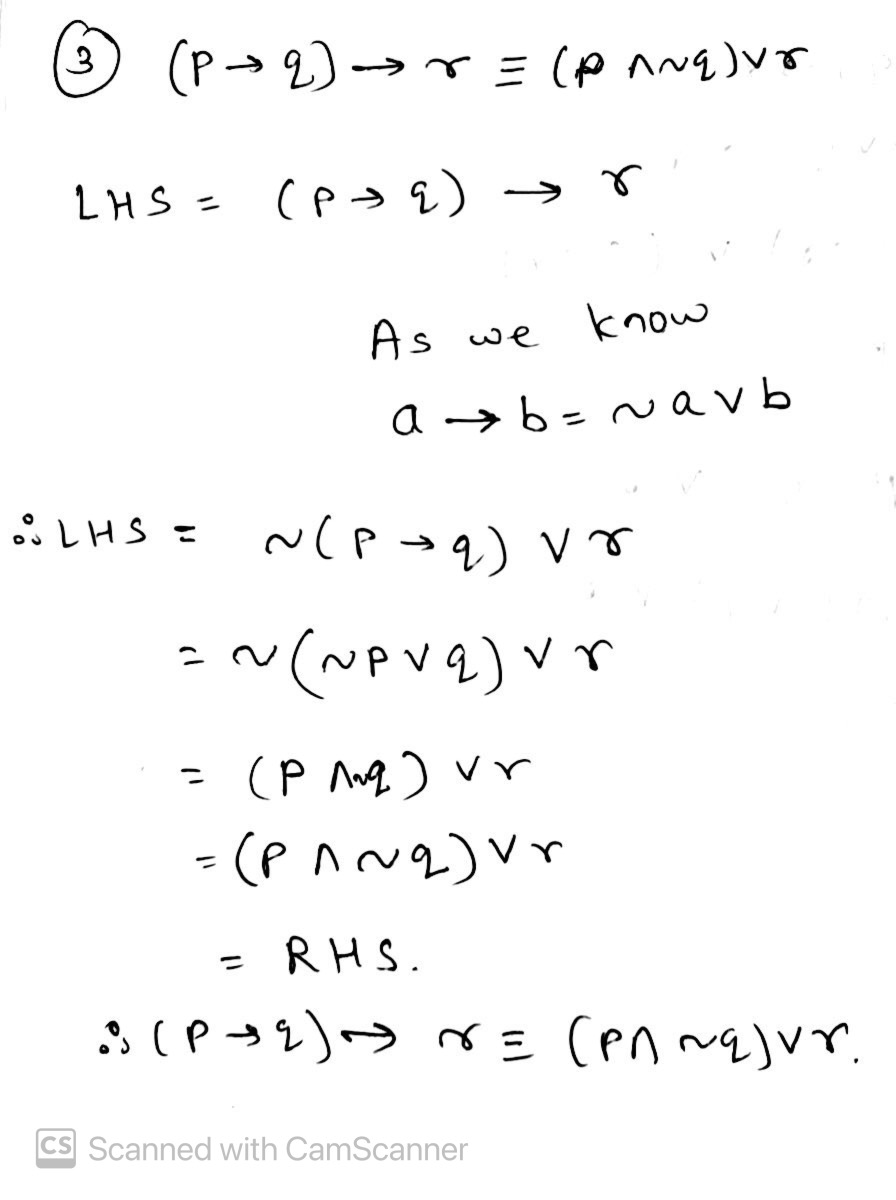 ③ (p → q) → r ≡ (p ∧ ~q) ∨ r
LHS = (p → q) → r
As we know
a → b = ~a ∨ b
∴ LHS = ~(p → q) ∨ r
= ~(~p ∨ q) ∨ r
= (p ∧ ~q) ∨ r
= (p ∧ ~q) ∨ r
= RHS.
∴ (p → q) → r ≡ (p ∧ ~q) ∨ r.
CS Scanned with CamScanner